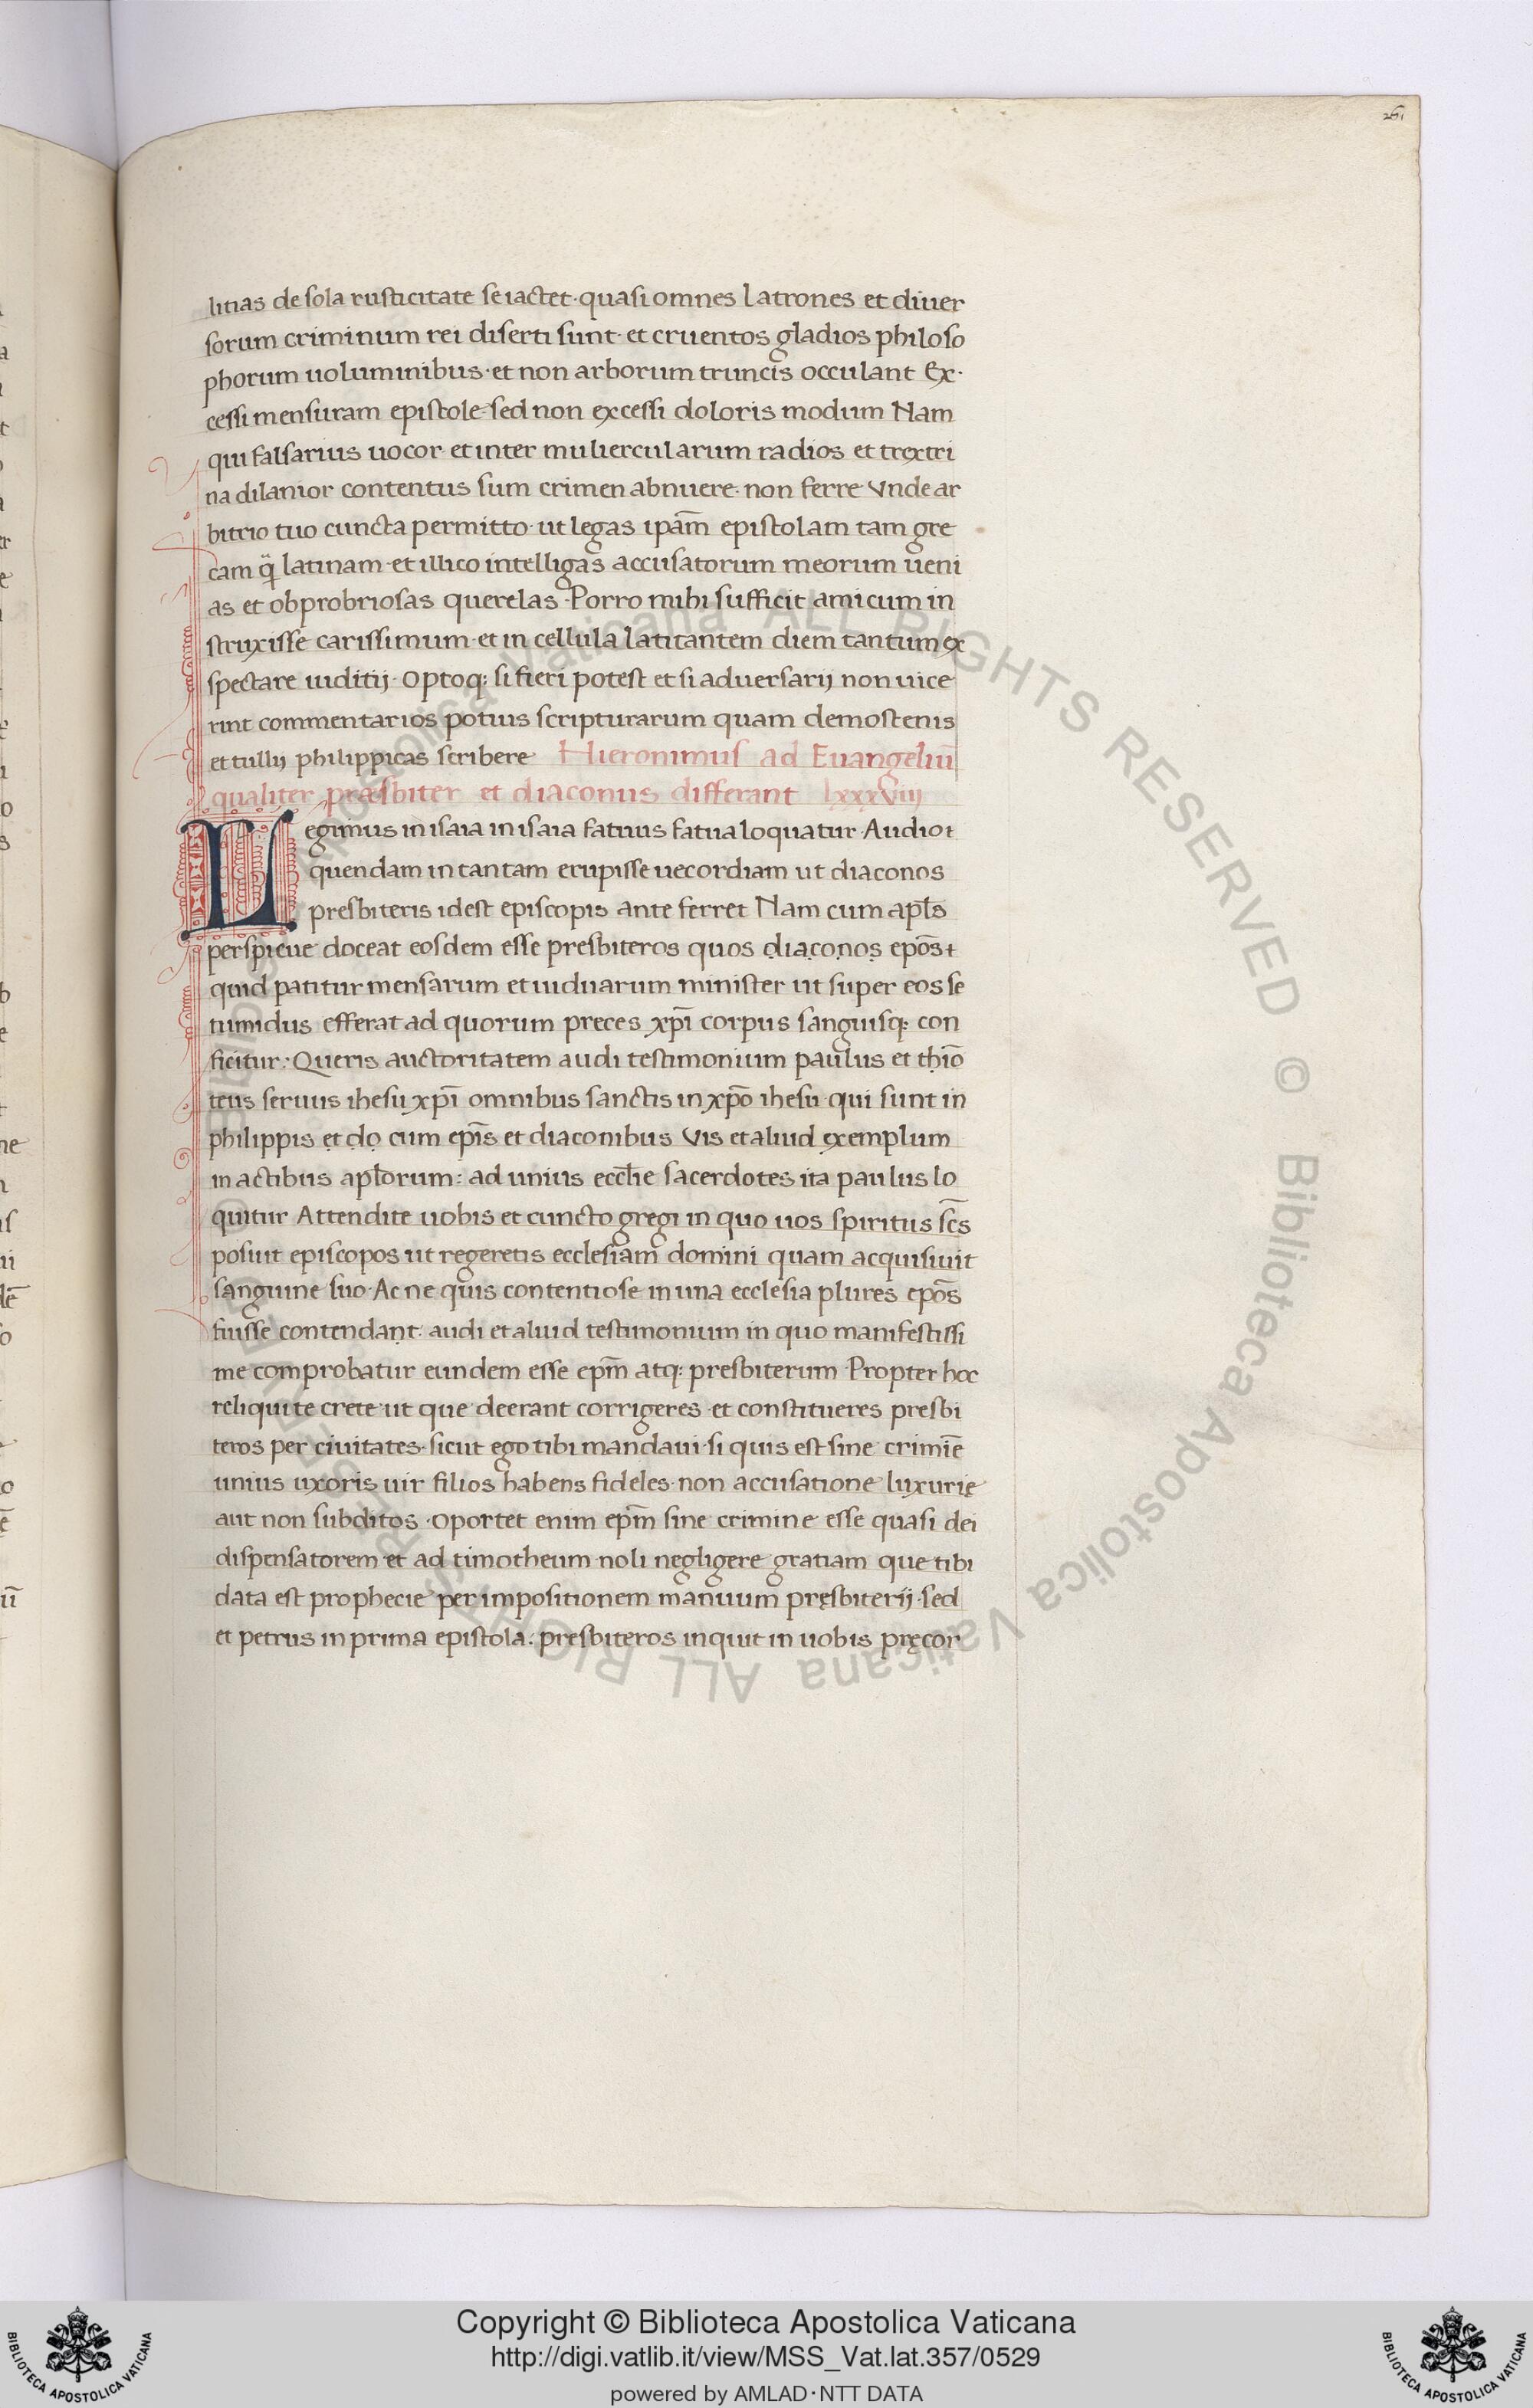 261
litias de sola rusticitate se iactet · quasi omnes latrones et diuer
sorum criminum rei diserti sunt · et cruentos gladios philoso
phorum uoluminibus · et non arborum truncis occulant Ex ·
cessi mensuram epistole · sed non excessi doloris modum Nam
qui falsarius uocor · et inter muliercularum radios et trextri
na dilanior contentus sum crimen abnuere · non ferre Vnde ar
bitrio tuo cuncta permitto · ut legas ipam̅ epistolam tam gre
cam q̃ latinam · et illico intelligas accusatorum meorum ueni
as et obprobriosas querelas · Porro mihi sufficit amicum in
struxisse carissimum · et in cellula latitantem diem tantum ex
spectare iuditij · Optoq: si fieri potest et si aduersarij non uice
rint commentarios potius scripturarum quam demostenis
et tullij philippicas scribere Hieronimus ad Euangeliū
qualiter præsbiter et diaconus differant lxxxViiij
Legimus in isaia in isaia fatuus fatua loquatur · Audio t
quendam in tantam erupisse uecordiam ut diaconos
presbiteris idest episcopis ante ferret Nam cum apl̅s
perspicue doceat eosdem esse presbiteros quos diaconos ep̅os t
quid patitur mensarum et uiduarum minister ut super eos se
tumidus efferat ad quorum preces xp̅i corpus sanguisq: con
ficitur : Queris auctoritatem audi testimonium paulus et thiō
teus seruus ihesu xp̅i omnibus sanctis in xp̅o ihesu · qui sunt in
philippis et do cum ep̅is et diaconibus Vis et aliud exemplum
in actibus apl̅orum : ad unius eccl̅ie sacerdotes ita paulus lo
quitur Attendite uobis et cuncto gregi in quo uos spiritus sc̅s
posuit episcopos ut regeretis ecclesiam domini quam acquisiuit
sanguine suo · Ac ne quis contentiose in una ecclesia plures ep̅os
fuisse contendant : audi et aliud testimonium in quo manifestissi
me comprobatur eundem esse ep̅m atq: presbiterum Propter hoc
reliqui te crete · ut que deerant corrigeres · et constitueres presbi
teros per ciuitates · sicut ego tibi mandaui · si quis est sine crimi̅e
unius uxoris uir filios habens fideles · non accusatione luxurię
aut non subditos · Oportet enim ep̅m sine crimine esse quasi dei
dispensatorem · et ad timotheum · noli negligere gratiam que tibi
data est prophecie per impositionem manuum pręsbiterij · sed
et petrus in prima epistola : presbiteros inquit in uobis pręcor
© Biblioteca Apostolica Vaticana ALL RIGHTS RESERVED
Copyright © Biblioteca Apostolica Vaticana
http://digi.vatlib.it/view/MSS_Vat.lat.357/0529
powered by AMLAD · NTT DATA
BIBLIOTECA APOSTOLICA VATICANA
BIBLIOTECA APOSTOLICA VATICANA